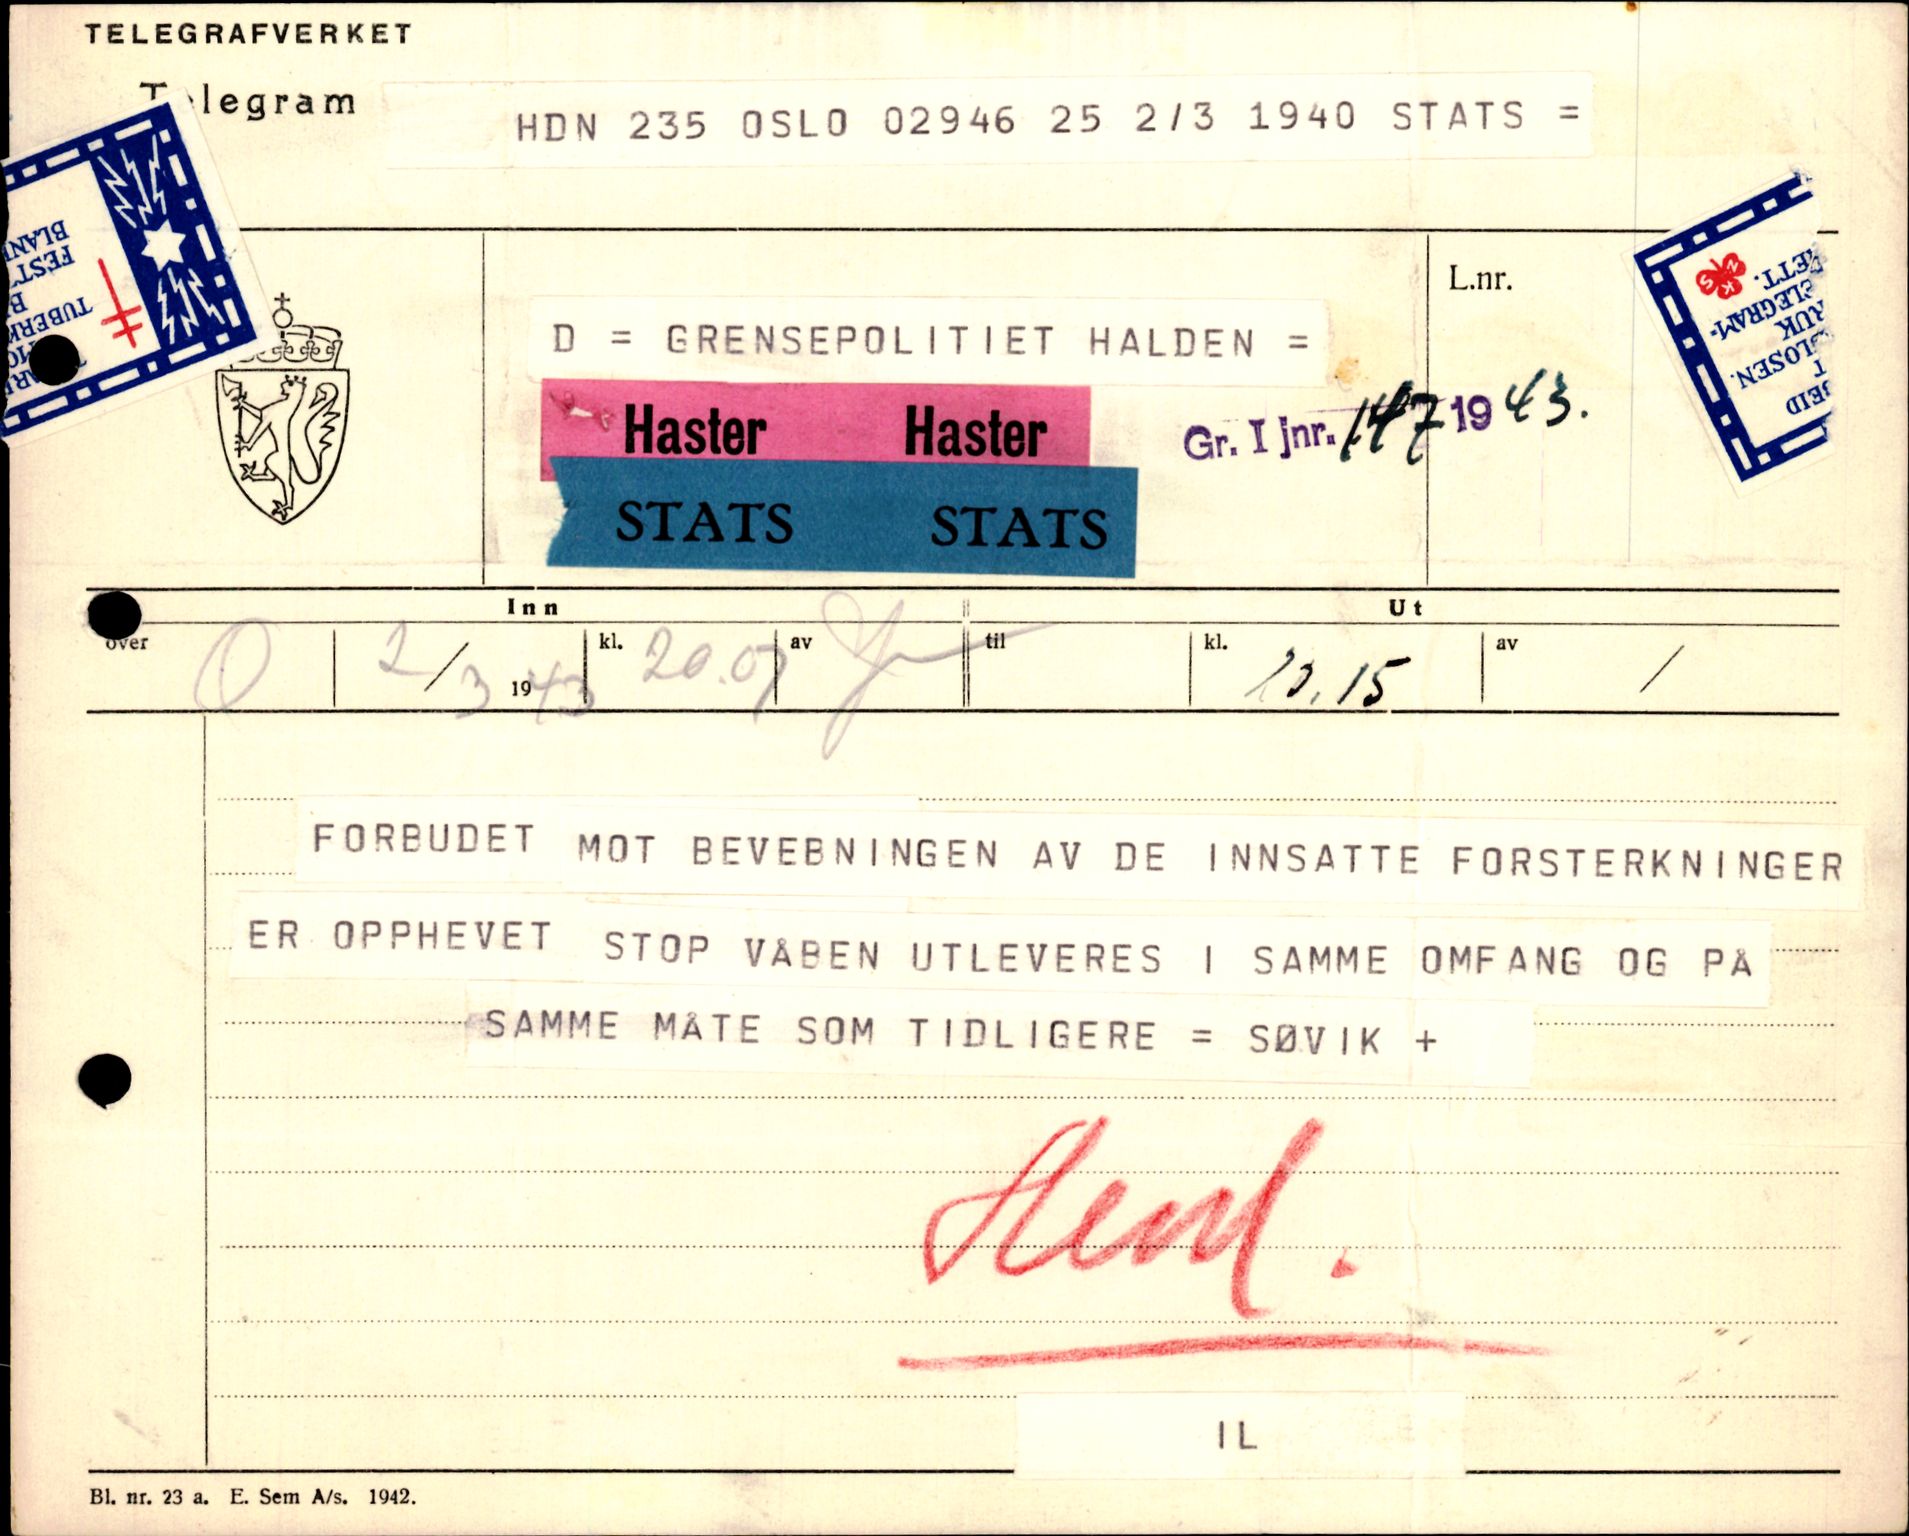 TELEGRAFVERKET
Telegram
HDN 235 OSLO 02946 25 2/3 1940 STATS =
BLAN
FEST
TUBERK
L.nr.
ETT.
ELEGRAM-
RUK
LOSEN.
T
BEID
D = GRENSEPOLITIET HALDEN =
Haster Haster
Gr. I jnr. 147 1943.
STATS STATS
Inn Ut
over O 2/3 1943 kl. 20.07 av til kl. 20.15 av /
FORBUDET MOT BEVEBNINGEN AV DE INNSATTE FORSTERKNINGER
ER OPPHEVET STOP VÅBEN UTLEVERES I SAMME OMFANG OG PÅ
SAMME MÅTE SOM TIDLIGERE = SØVIK +
IL
Bl. nr. 23 a. E. Sem A/s. 1942.